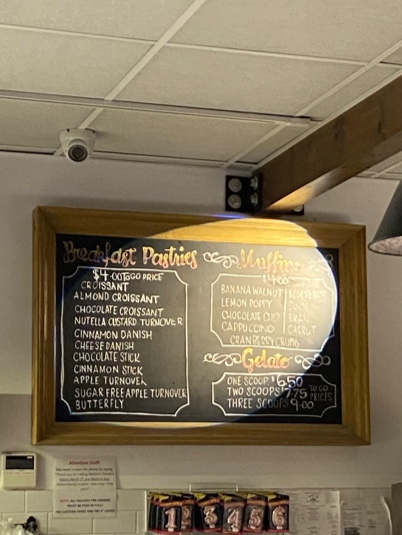 Breakfast Pastries
$4.00 TOGO PRICE
CROISSANT
ALMOND CROISSANT
CHOCOLATE CROISSANT
NUTELLA CUSTARD TURNOVER
CINNAMON DANISH
CHEESE DANISH
CHOCOLATE STICK
CINNAMON STICK
APPLE TURNOVER
SUGAR FREE APPLE TURNOVER
BUTTERFLY
Muffins
$4.00
BANANA WALNUT
LEMON POPPY
CHOCOLATE CHIP
CAPPUCCINO
BLUEBERRY
CORN
BRAN
CARROT
CRANBERRY CRUMB
Gelato
ONE SCOOP $6.50
TWO SCOOPS $7.75
THREE SCOOPS 9.00
TO GO
PRICES
Attention Staff:
1 2 3 4 5 6